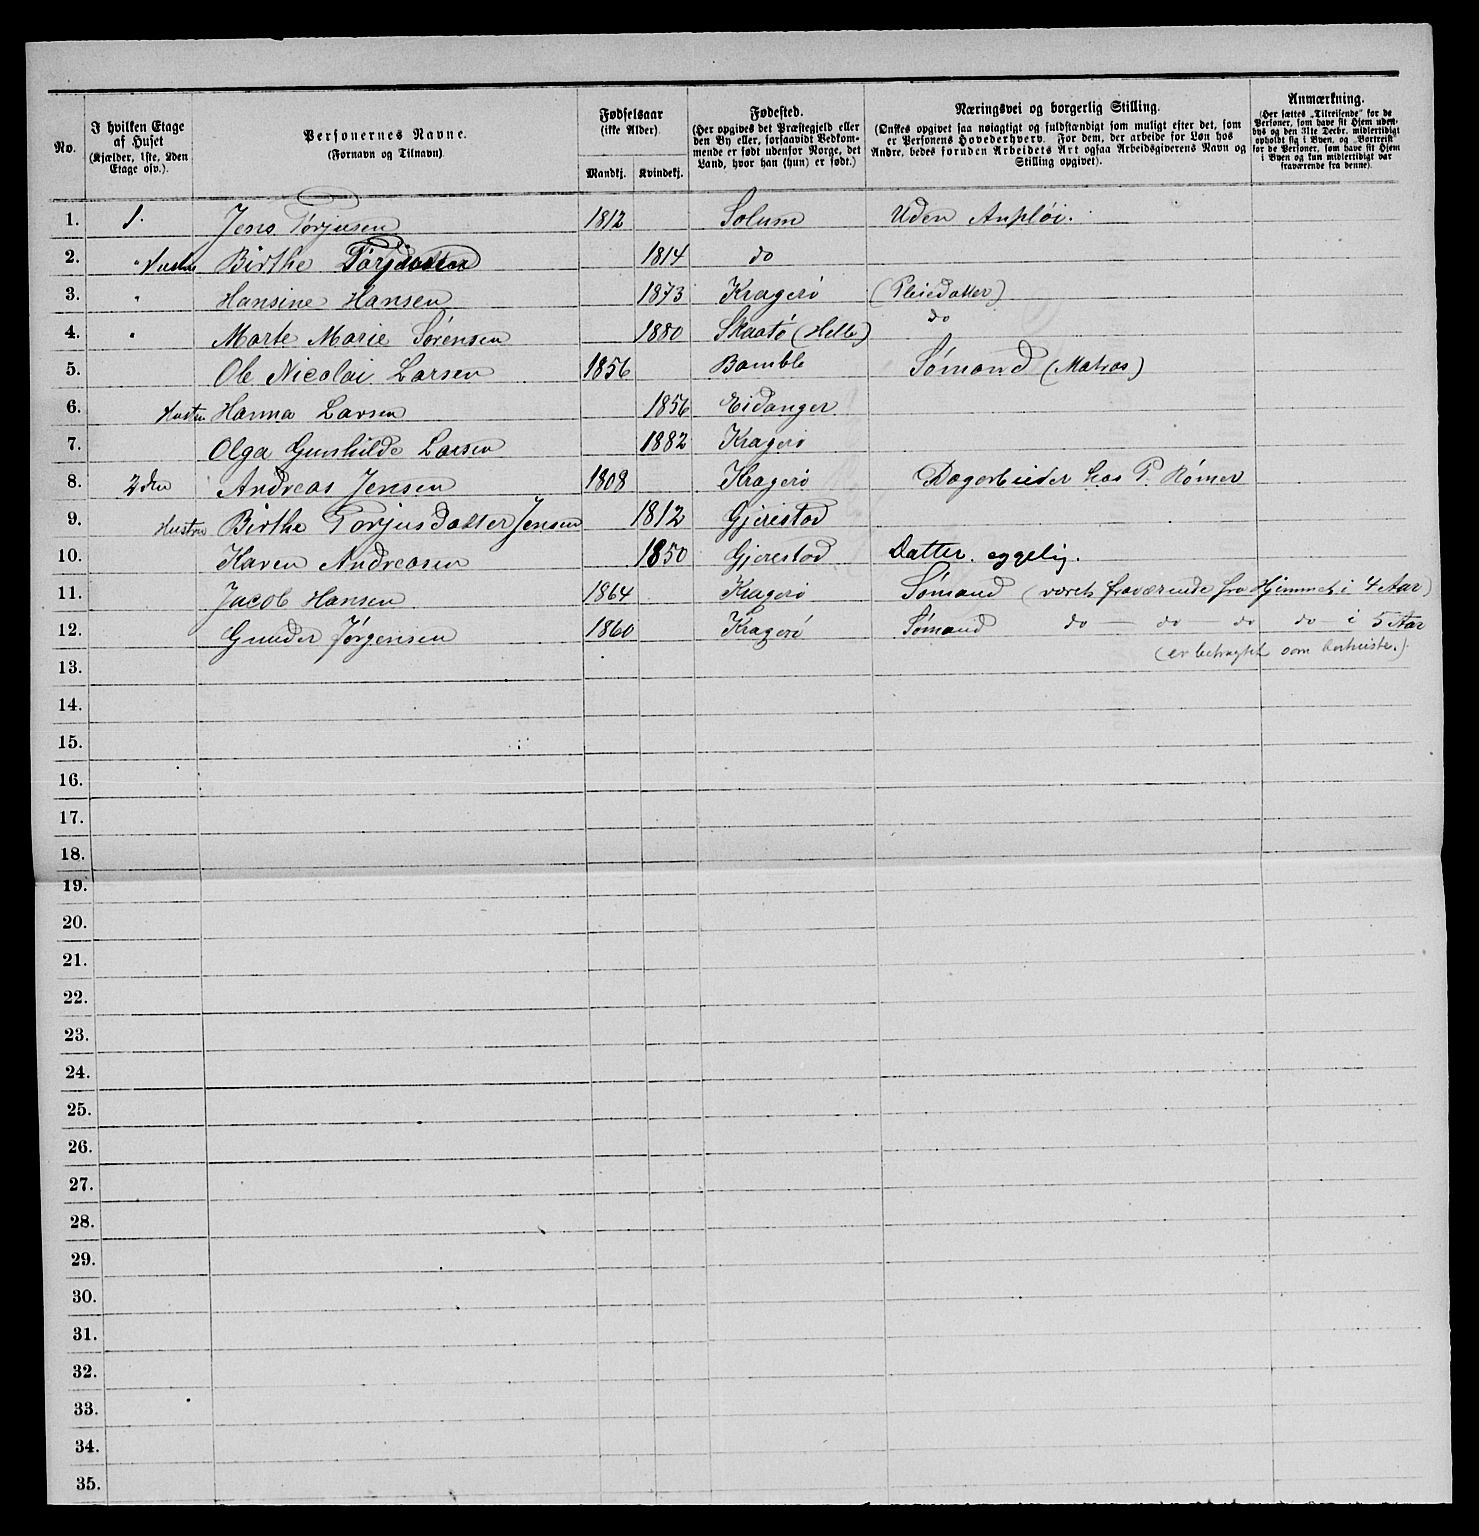 No.
I hvilken Etage
af Huset
(Kjælder, 1ste, 2den
Etage osv.).
Personernes Navne.
(Fornavn og Tilnavn)
Fødselsaar
(ikke Alder).
Mandkj. Kvindekj.
Fødested.
(Her opgives det Præstegjeld eller
den By eller, forsaavidt Vedkom-
mende er født udenfor Norge, det
Land, hvor han (hun) er født.)
Næringsvei og borgerlig Stilling.
(Ønskes opgivet saa nøiagtigt og fuldstændigt som muligt efter det, som
er Personens Hovederhverv. For dem, der arbeide for Løn hos
Andre, bedes foruden Arbeidets Art ogsaa Arbeidsgiverens Navn og
Stilling opgivet).
Anmærkning.
(Her sættes „Tilreisende“ for de
Personer, som have sit Hjem uden-
bys og den 31te Decbr. midlertidigt
opholdt sig i Byen, og „Bortreist“
for de Personer, som have sit Hjem
i Byen og kun midlertidigt var
fraværende fra denne).
1. 1. Jens Torjusen 1812 Solum Uden Anpløi.
2. " Hustru Birthe 1814 do
3. " Hansine Hansen 1873 Kragerø (Pleiedatter)
4. " Marte Marie Sørensen 1880 Skaatø (Helle) do
5. Ole Nicolai Larsen 1856 Bamble Sømand (Matros)
6. Hustru Hanna Larsen 1856 Eidanger
7. Olga Gunhilde Larsen 1882 Kragerø
8. 2den Andreas Jensen 1808 Kragerø Dagarbeider hos P. Rømer
9. Hustru Birthe Torjusdatter Jensen 1812 Gjerestad
10. Karen Andreasen 1850 Gjerestad Datter
11. Jacob Hansen 1864 Kragerø Sømand (været fraværende fra Hjemmet i 4 Aar)
12. Gunder Jørgensen 1860 Kragerø Sømand do — do do do i 5 Aar
(er betragtet som bortreiste.)
13.
14.
15.
16.
17.
18.
19.
20.
21.
22.
23.
24.
25.
26.
27.
28.
29.
30.
31.
32.
33.
34.
35.